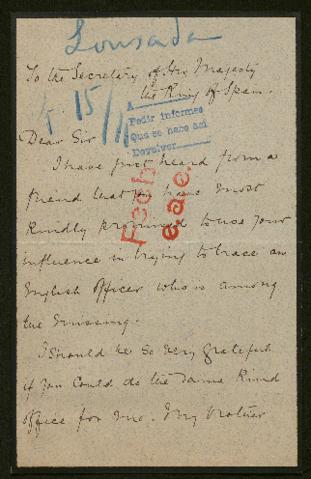 Lousada
To the Secretary of His Majesty
the King of Spain.
4 15/11
A
Pedir informes
Que se hace asi
Devolver
Dear Sir
I have just heard from a
friend that you have most
kindly promised to use your
influence in trying to trace an
English Officer who is among
the missing.
Fecha
e.a.e.
I should be so very grateful
if you could do the same kind
office for me. My brother